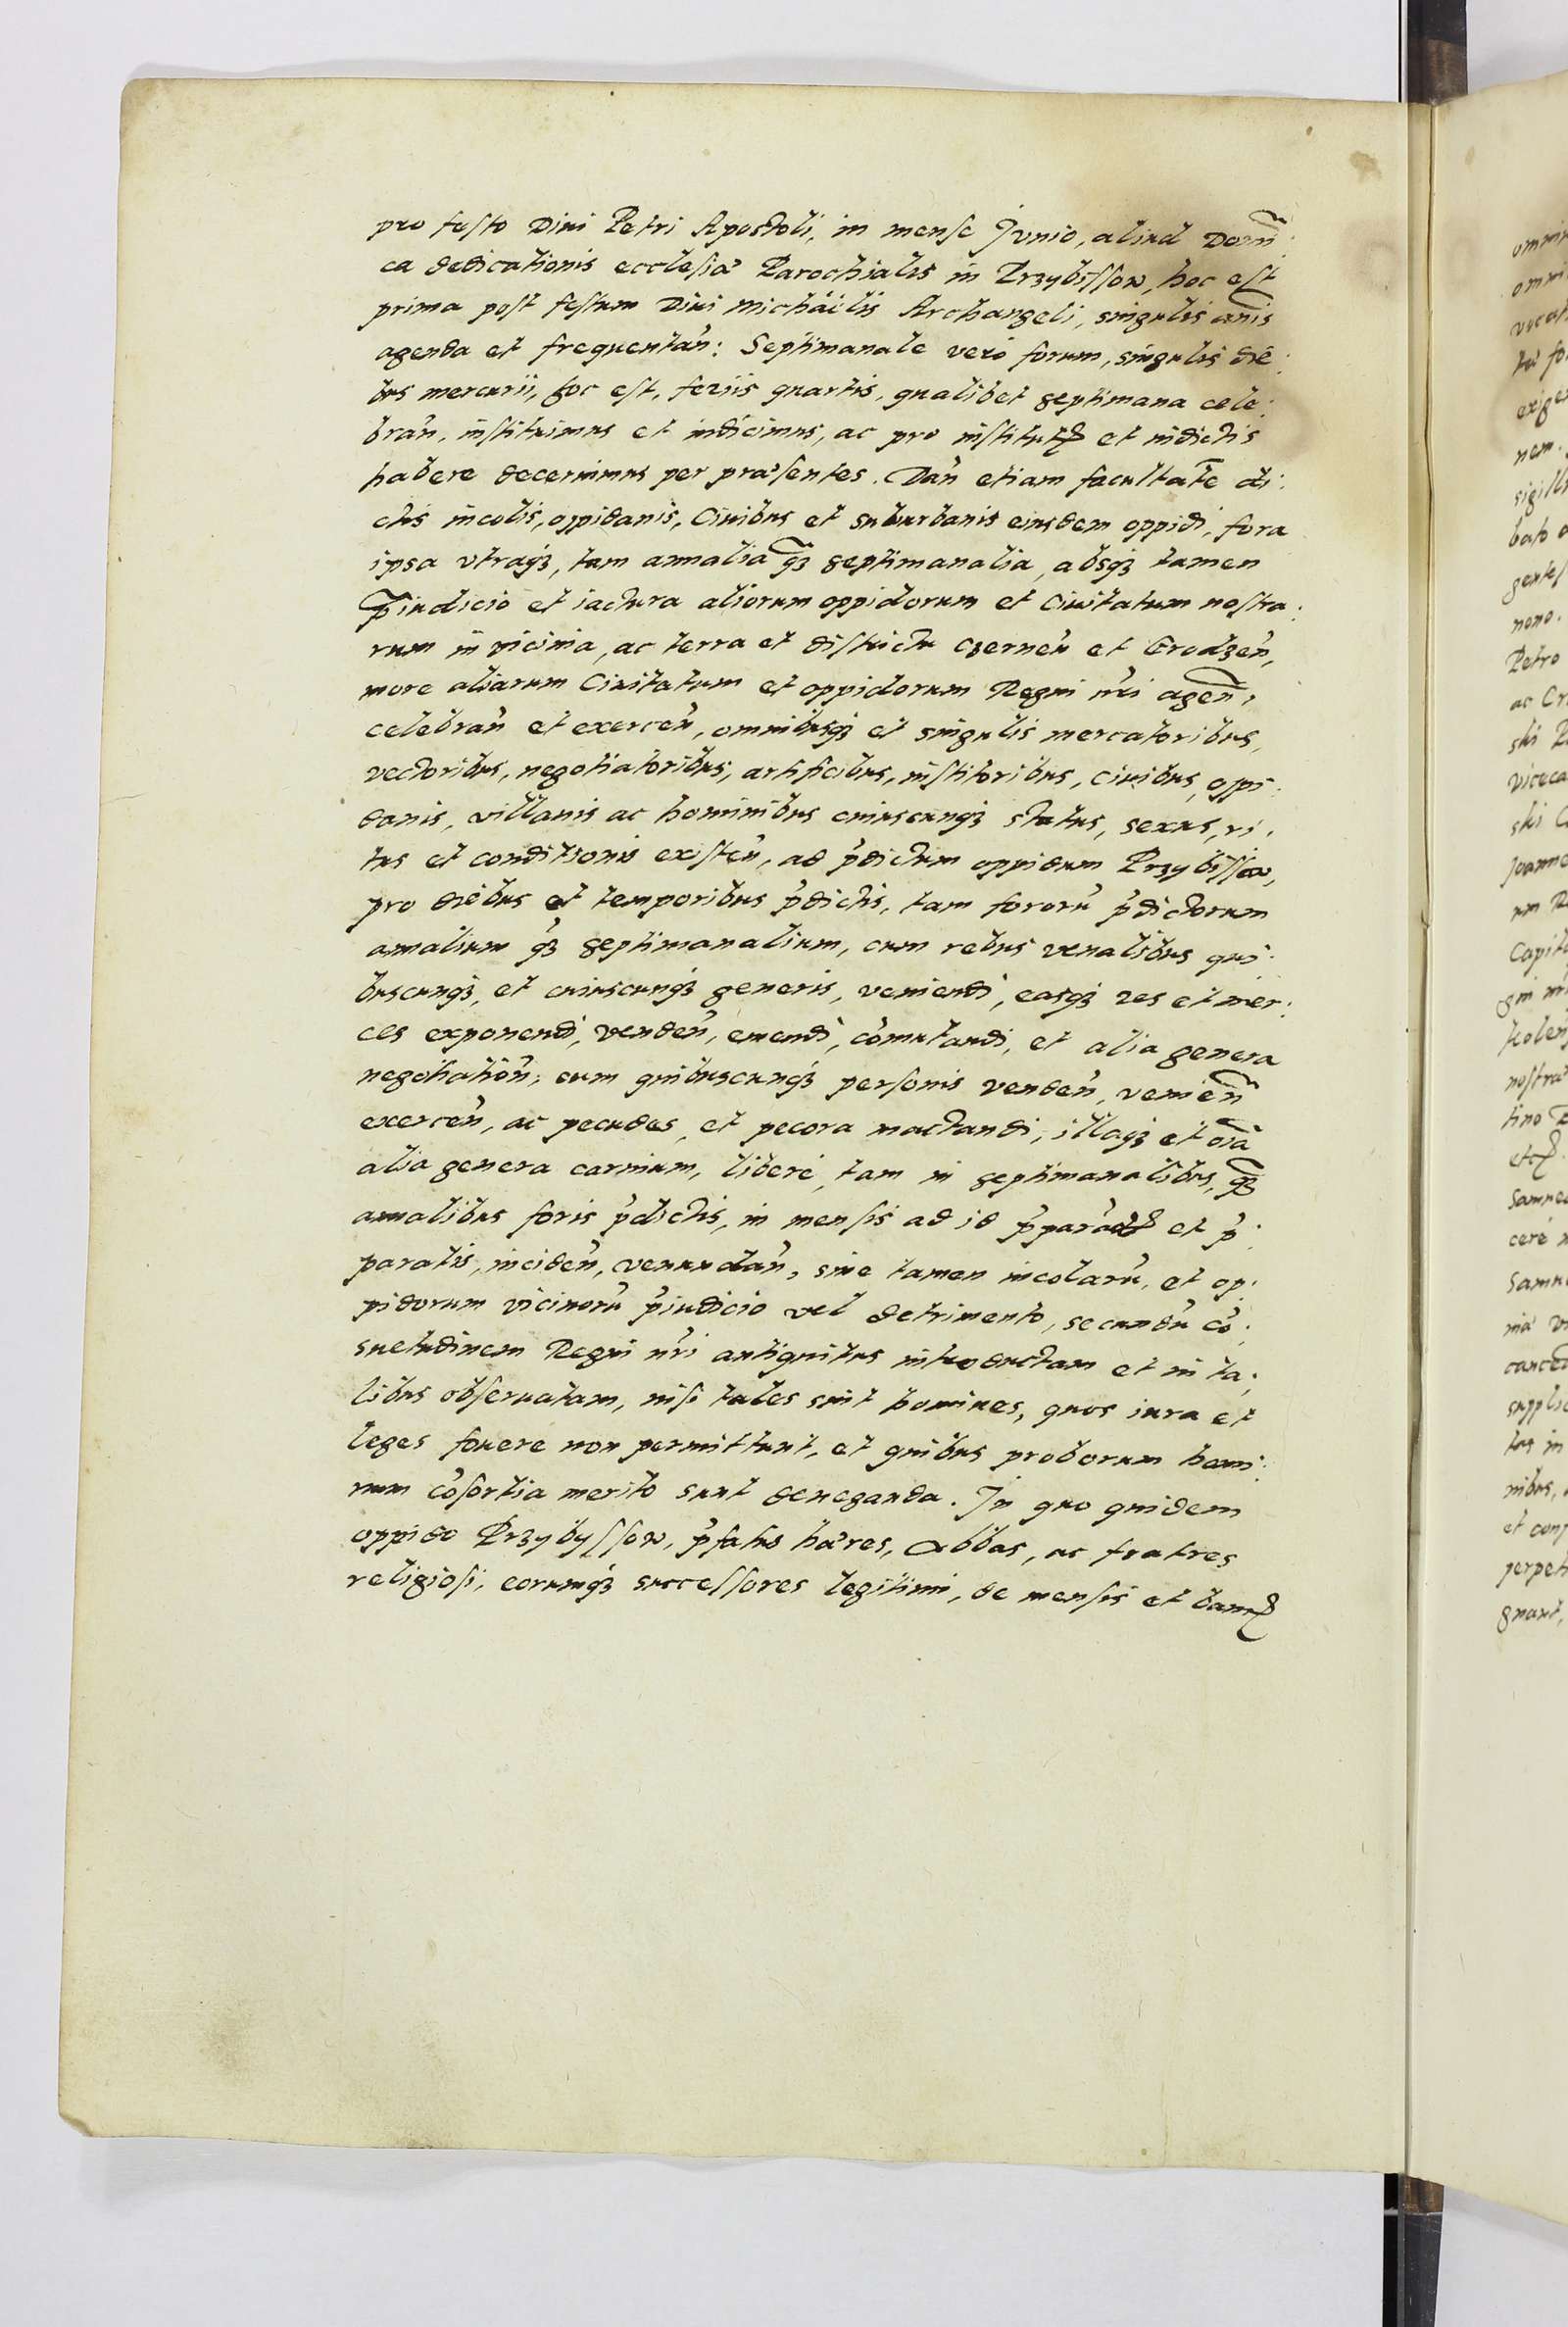 pro festo Diui Petri Apostoli, in mense Junio, aliud Dom̃i:
ca dedicationis ecclesiæ Parochialis in Przybissow, hoc est
prima post festum Diui Michäelis Archangeli, singulis anis̃
agenda et frequentan̉: Septimanale verò forum, singulis die:
bus mercurii, hoc est, feriis quartis, qualibet septimana cele:
bran̉, instituimus et indicimus, ac pro institutꝭ et indictis
habere decernimus per præsentes. Dan̉ etiam facultatē di:
ctis incolis, oppidanis, Ciuibus et suburbanis eiusdem oppidi, fora
ipsa vtraqꝫ, tam annalia q̃ꝫ septimanalia, absqꝫ tamen
p̃iudicio et iactura aliorum oppidorum et Ciuitatum nostra:
rum in vicinia, ac terra et districtu Czernen̉ et Grodzen̉,
more aliarum Ciuitatum et oppidorum Regni nr̃i agen̉,
celebran̉ et exercen̉, omnibusqꝫ et singulis mercatoribus,
vectoribus, negotiatoribus, artificibus, institoribus, ciuibus, oppi:
danis, villanis ac hominibus cuiuscunqꝫ status, sexus, ri:
tus et conditionis existen̉, ad p̉dictum oppidum Przybissow,
pro diebus et temporibus p̉dictis, tam fororu̓ p̉dictorum
annalium q̉ꝫ septimanalium, cum rebus venalibus qui:
buscunqꝫ, et cuiuscunqꝫ generis, veniendi, easqꝫ res et mer:
ces exponendi, venden̉, emendi, co̓mutandi, et alia genera
negotiation̉, cum quibuscunqꝫ personis venden̉, venien̉
exercen̉, ac pecudes, et pecora mactandi, illaqꝫ et oĩa
alia genera carnium, liberè, tam in septimanalibus, q̃ꝫ
annalibus foris p̉dictis, in mensis ad id p̉parādꝭ et p̉:
paratis, inciden̉, venundan̉, sine tamen incolaru̓, et op:
pidorum vicinoru̓ p̉iudicio vel detrimento, secundu̓ co̓:
suetudinem Regni nr̉i antiquitus introductam et in ta:
libus obseruatam, nisi tales sint homines, quos iura et
leges fouere non permittunt, et quibus proborum homi:
num co̓sortia merito sunt deneganda. In quo quidem
oppido Przybyssow, p̉fatus hæres, Abbas, ac fratres
religiosi, eorumqꝫ successores legitimi, de mensis et bancꝭ